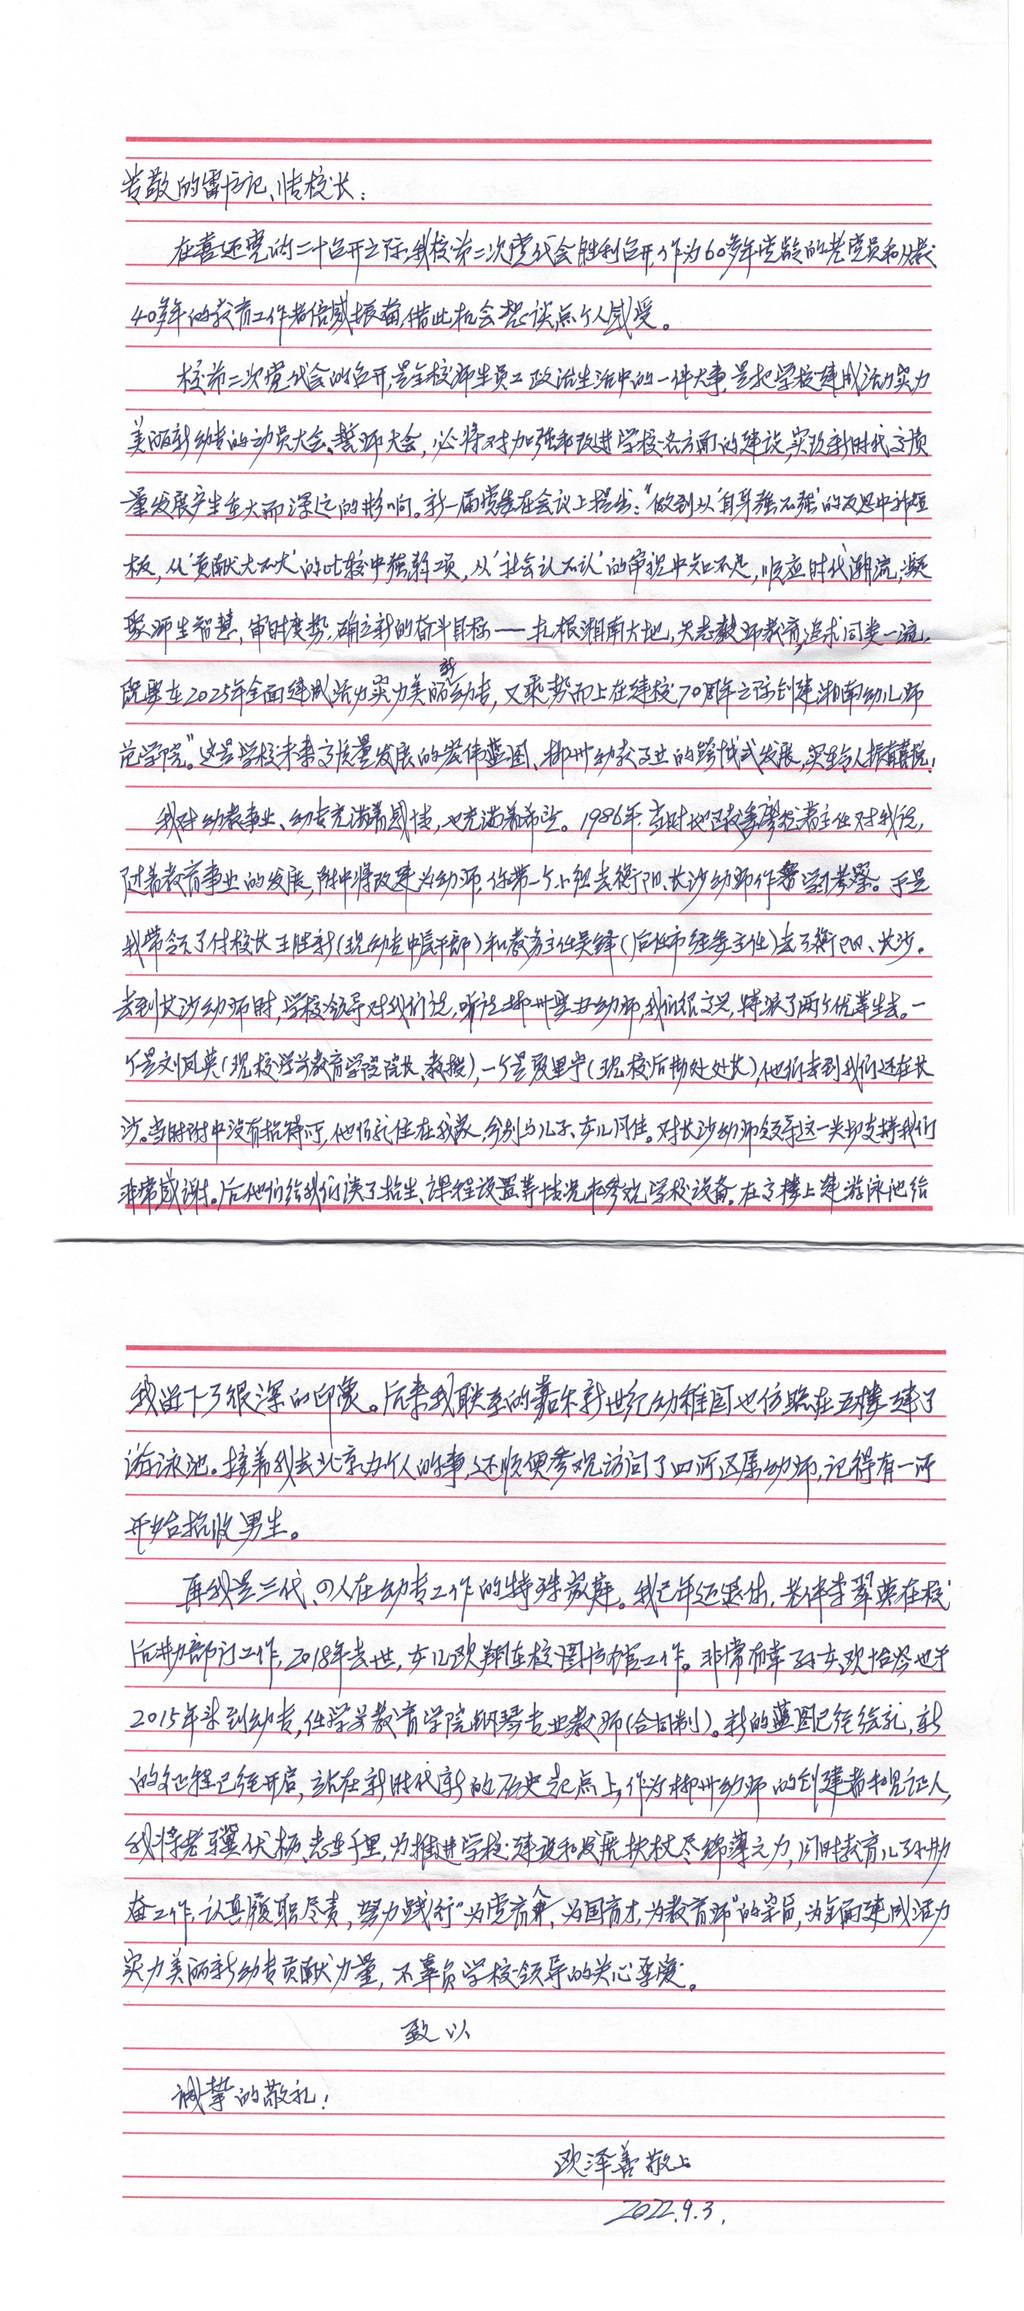 尊敬的雷书记、陆校长：
在喜迎党的二十召开之际，我校第二次党代会胜利召开，作为60多年党龄的老党员和从教
40多年的教育工作者倍感振奋，借此机会想谈点个人感受。
校第二次党代会的召开，是全校师生员工政治生活中的一件大事，是把学校建成活力实力
美丽新幼专的动员大会、誓师大会，必将对加强和改进学校各方面的建设，实现新时代高质
量发展产生重大而深远的影响。新一届党委在会议上提出：“做到从‘自身强不强’的反思中补短
板，从‘贡献大不大’的比较中强弱项，从‘社会认不认’的审视中知不足，顺应时代潮流，凝
聚师生智慧，审时度势，确立新的奋斗目标——扎根湘南大地，矢志教师教育，追求同类一流，
既要在2025年全面建成活力实力美丽新幼专，又乘势而上在建校70周年之际创建湘南幼儿师
范学院。”这是学校未来高质量发展的宏伟蓝图、郴州幼教事业的跨越式发展，实在令人振奋喜悦！
我对幼教事业、幼专充满着感情，也充满着希望。1986年，当时地区教委主任对我说，
随着教育事业的发展，附中将改建为幼师，你带一个小组去衡阳、长沙幼师作学习考察。于是
我带领了付校长王胜新（现幼专中层干部）和教务主任吴锋（后任市经委主任）去了衡阳、长沙。
去到长沙幼师时，学校领导对我们说，听说郴州要办幼师，我们很高兴，特派了两个优草生去。一
个是刘凤英（现校学前教育学院院长、教授），一个是夏里宁（现校后勤处处长），他们来到我们还在长
沙。当时附中没有招待所，他们就住在我家，分别与儿子、女儿同住。对长沙幼师领导这一关切支持我们
非常感谢。后他们给我们谈了招生、课程设置等情况和参观学校设备。在高楼上建游泳池给
我留下了很深的印象。后来我联系的嘉禾新世纪幼稚园也仿照在五楼建了
游泳池。接着我去北京办个人的事，还顺便参观访问了四所区属幼师，记得有一所
开始招收男生。
再我是三代、四人在幼专工作的特殊家庭。我已年迈退休，老伴李翠英在校
后勤部门工作，2018年去世，女儿欧翔在校图书馆工作。非常有幸孙女欧怡岑也于
2015年来到幼专，任学前教育学院钢琴专业教师（合同制）。新的蓝图已经绘就，新
的征程已经开启，站在新时代新的历史起点上，作为郴州幼师的创建者和见证人，
我将老骥伏枥，志在千里，为推进学校建设和发展扶杖尽绵薄之力，同时教育儿孙勤
奋工作，认真履职尽责，努力践行“为党育人，为国育才，为教育师”的宗旨，为全面建成活力
实力美丽新幼专贡献力量，不辜负学校领导的关心厚爱。
致以
诚挚的敬礼！
欧泽善敬上
2022.9.3.